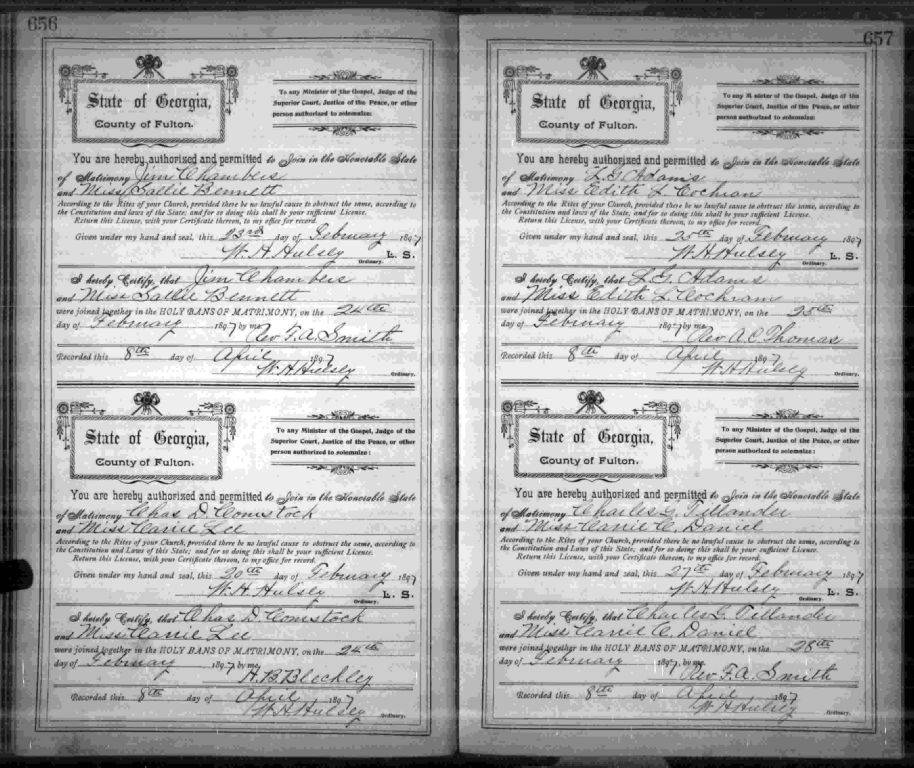 656
State of Georgia,
County of Fulton.
To any Minister of the Gospel, Judge of the
Superior Court, Justice of the Peace, or other
person authorized to solemnize:
You are hereby authorized and permitted to Join in the Honorable State
of Matrimony Jim Chambers
and Miss Sallie Bennett
According to the Rites of your Church, provided there be no lawful cause to obstruct the same, according to
the Constitution and laws of the State; and for so doing this shall be your sufficient License.
Return this License, with your Certificate thereon, to my office for record.
Given under my hand and seal, this 23rd day of February 1897
W. H. Hulsey L. S.
Ordinary.
I hereby Certify, that Jim Chambers
and Miss Sallie Bennett
were joined together in the HOLY BANS OF MATRIMONY, on the 24th
day of February 1897 by me,
Rev F. A. Smith
Recorded this 8th day of April 1897
W. H. Hulsey
Ordinary.
State of Georgia,
County of Fulton.
To any Minister of the Gospel, Judge of the
Superior Court, Justice of the Peace, or other
person authorized to solemnize:
You are hereby authorized and permitted to Join in the Honorable State
of Matrimony Chas D. Comstock
and Miss Carrie Lee
According to the Rites of your Church, provided there be no lawful cause to obstruct the same, according to
the Constitution and Laws of this State; and for so doing this shall be your sufficient License.
Return this License, with your Certificate thereon, to my office for record.
Given under my hand and seal, this 20th day of February 1897
W. H. Hulsey L. S.
Ordinary.
I hereby Certify, that Chas D. Comstock
and Miss Carrie Lee
were joined together in the HOLY BANS OF MATRIMONY, on the 24th
day of February 1897 by me,
H. B. Bleckley
Recorded this 8th day of April 1897
W. H. Hulsey
Ordinary.
657
State of Georgia,
County of Fulton.
To any Minister of the Gospel, Judge of the
Superior Court, Justice of the Peace, or other
person authorized to solemnize:
You are hereby authorized and permitted to Join in the Honorable State
of Matrimony L. G. Adams
and Miss Edith L Cochran
According to the Rites of your Church, provided there be no lawful cause to obstruct the same, according to
the Constitution and laws of the State; and for so doing this shall be your sufficient License.
Return this License, with your Certificate thereon, to my office for record
Given under my hand and seal, this 25th day of February 1897
W. H. Hulsey L. S.
Ordinary.
I hereby Certify, that L. G. Adams
and Miss Edith L Cochran
were joined together in the HOLY BANS OF MATRIMONY, on the 25th
day of February 1897 by me,
Rev A. C. Thomas
Recorded this 8th day of April 1897
W. H. Hulsey
Ordinary.
State of Georgia,
County of Fulton.
To any Minister of the Gospel, Judge of the
Superior Court, Justice of the Peace, or other
person authorized to solemnize:
You are hereby authorized and permitted to Join in the Honorable State
of Matrimony Charles G. Tillander
and Miss Carrie C. Daniel
According to the Rites of your Church, provided there be no lawful cause to obstruct the same, according to
the Constitution and Laws of this State; and for so doing this shall be your sufficient License.
Return this License, with your Certificate thereon, to my office for record.
Given under my hand and seal, this 27th day of February 1897
W. H. Hulsey L. S.
Ordinary.
I hereby Certify, that Charles G. Tillander
and Miss Carrie C. Daniel
were joined together in the HOLY BANS OF MATRIMONY, on the 28th
day of February 1897 by me,
Rev F. A. Smith
Recorded this 8th day of April 1897
W. H. Hulsey
Ordinary.